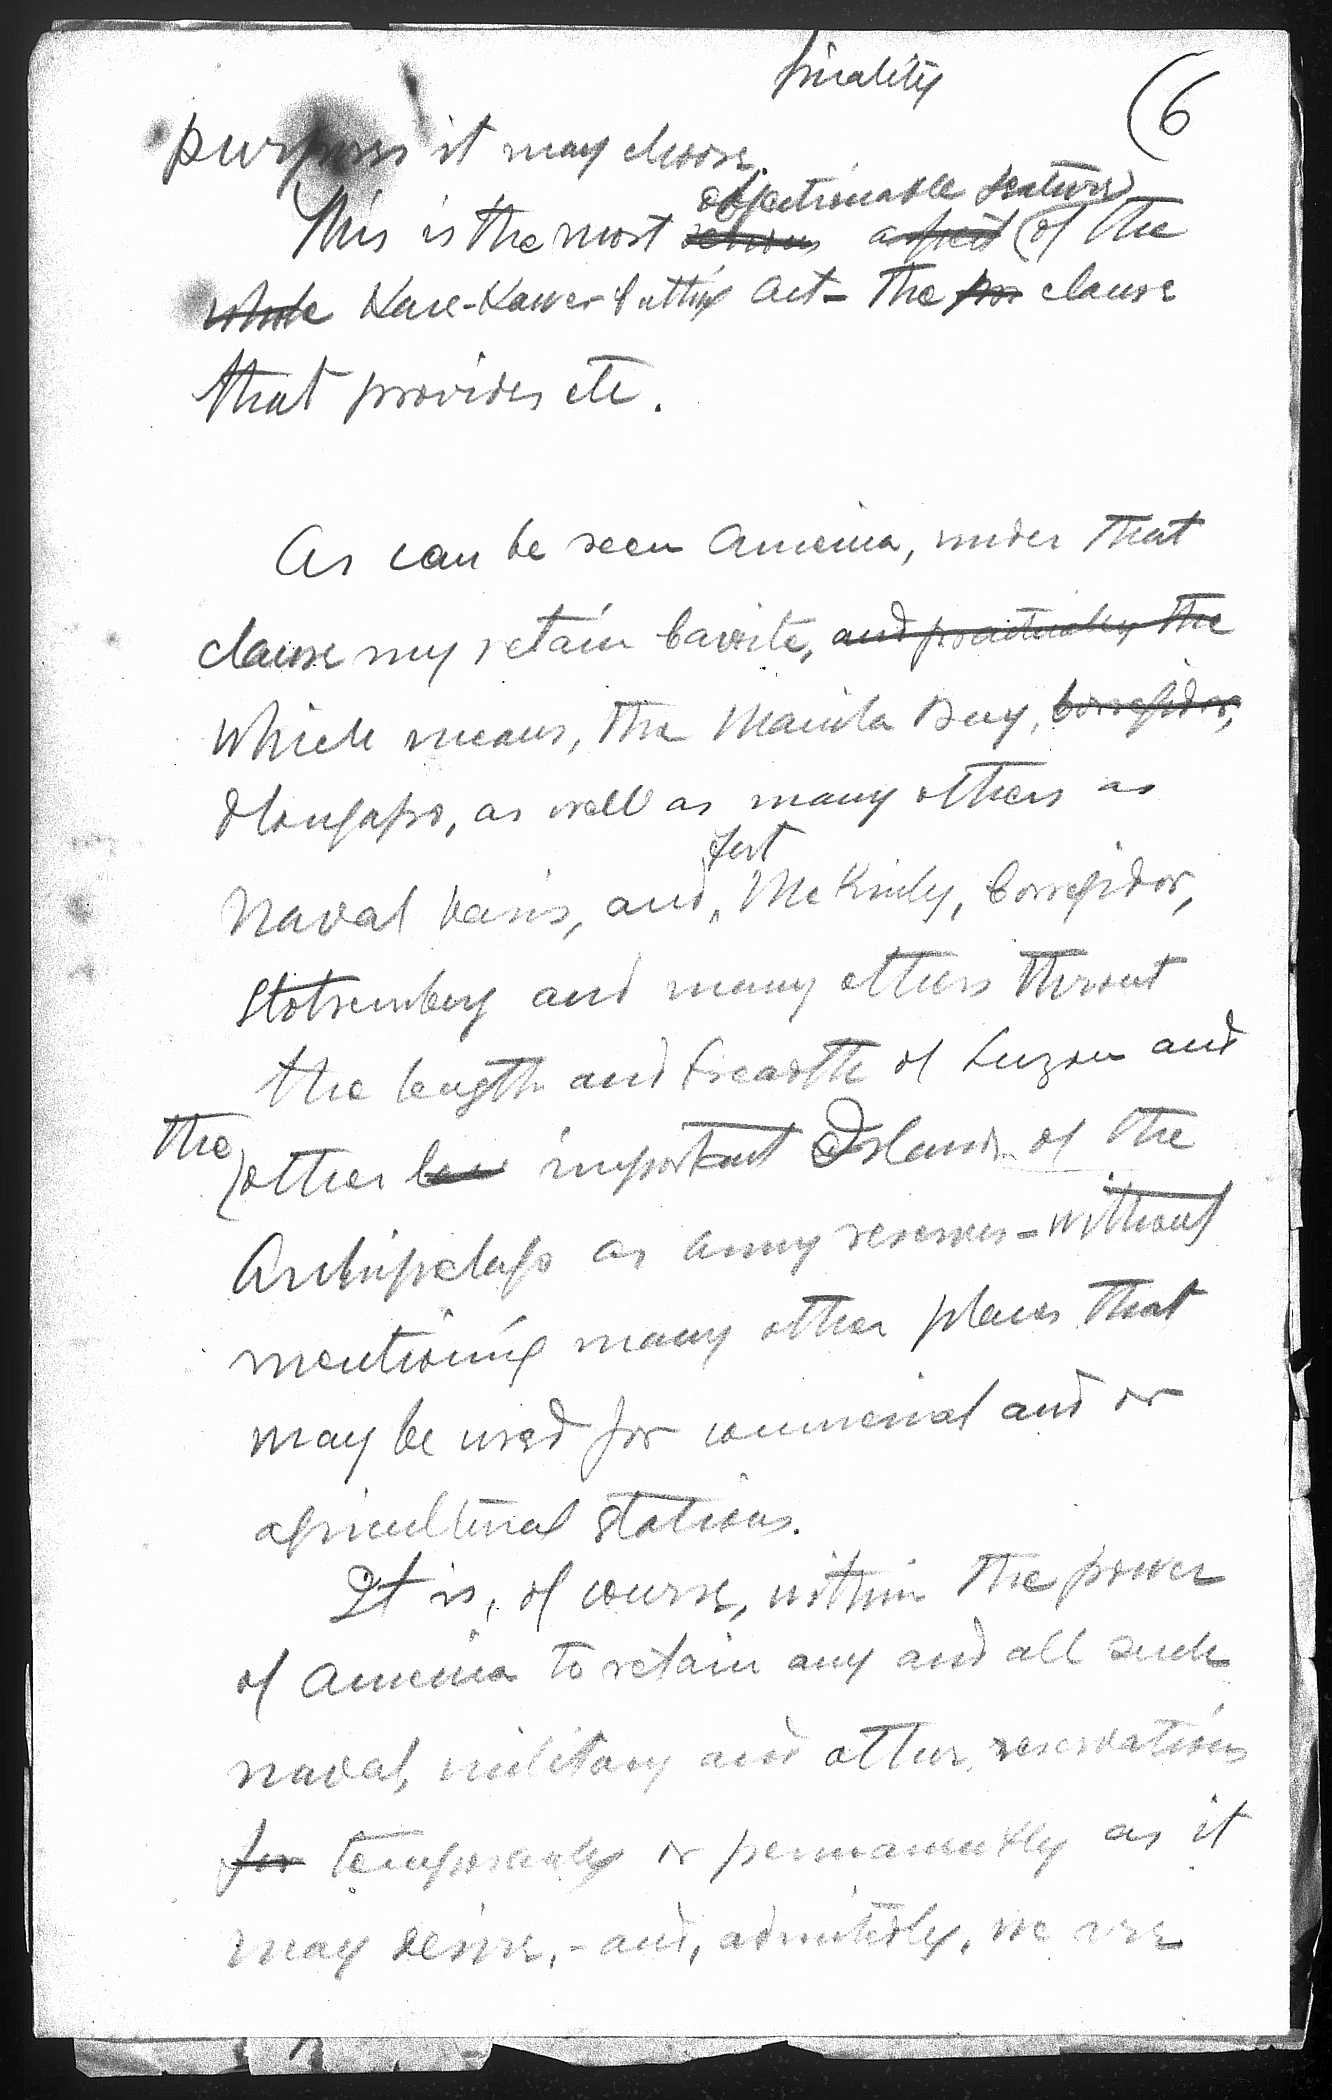 finality
(6
purposes it may choose.
objectionable feature
This is the most serious aspect (of the
whole Hare-Hawes-Cutting Act - the pro clause
that provides etc.
As can be seen America, under that
clause my retain Cavite, and practically the
which means, the Manila Bay, Corregidor,
Olongapo, as well as many others as
Fort
Naval basis, and, McKinly, Corregidor,
Stotsenberg and many others throut
the length and breadth of Luzon and
the
other important Islands of the
Archipelago as army reserves - without
mentioning many other places that
may be used for commercial and or
agricultural stations.
It is, of course, within the power
of America to retain any and all such
naval, military and other reservations
for temporarily or permanently as it
may desire, - and, admitedly, we are